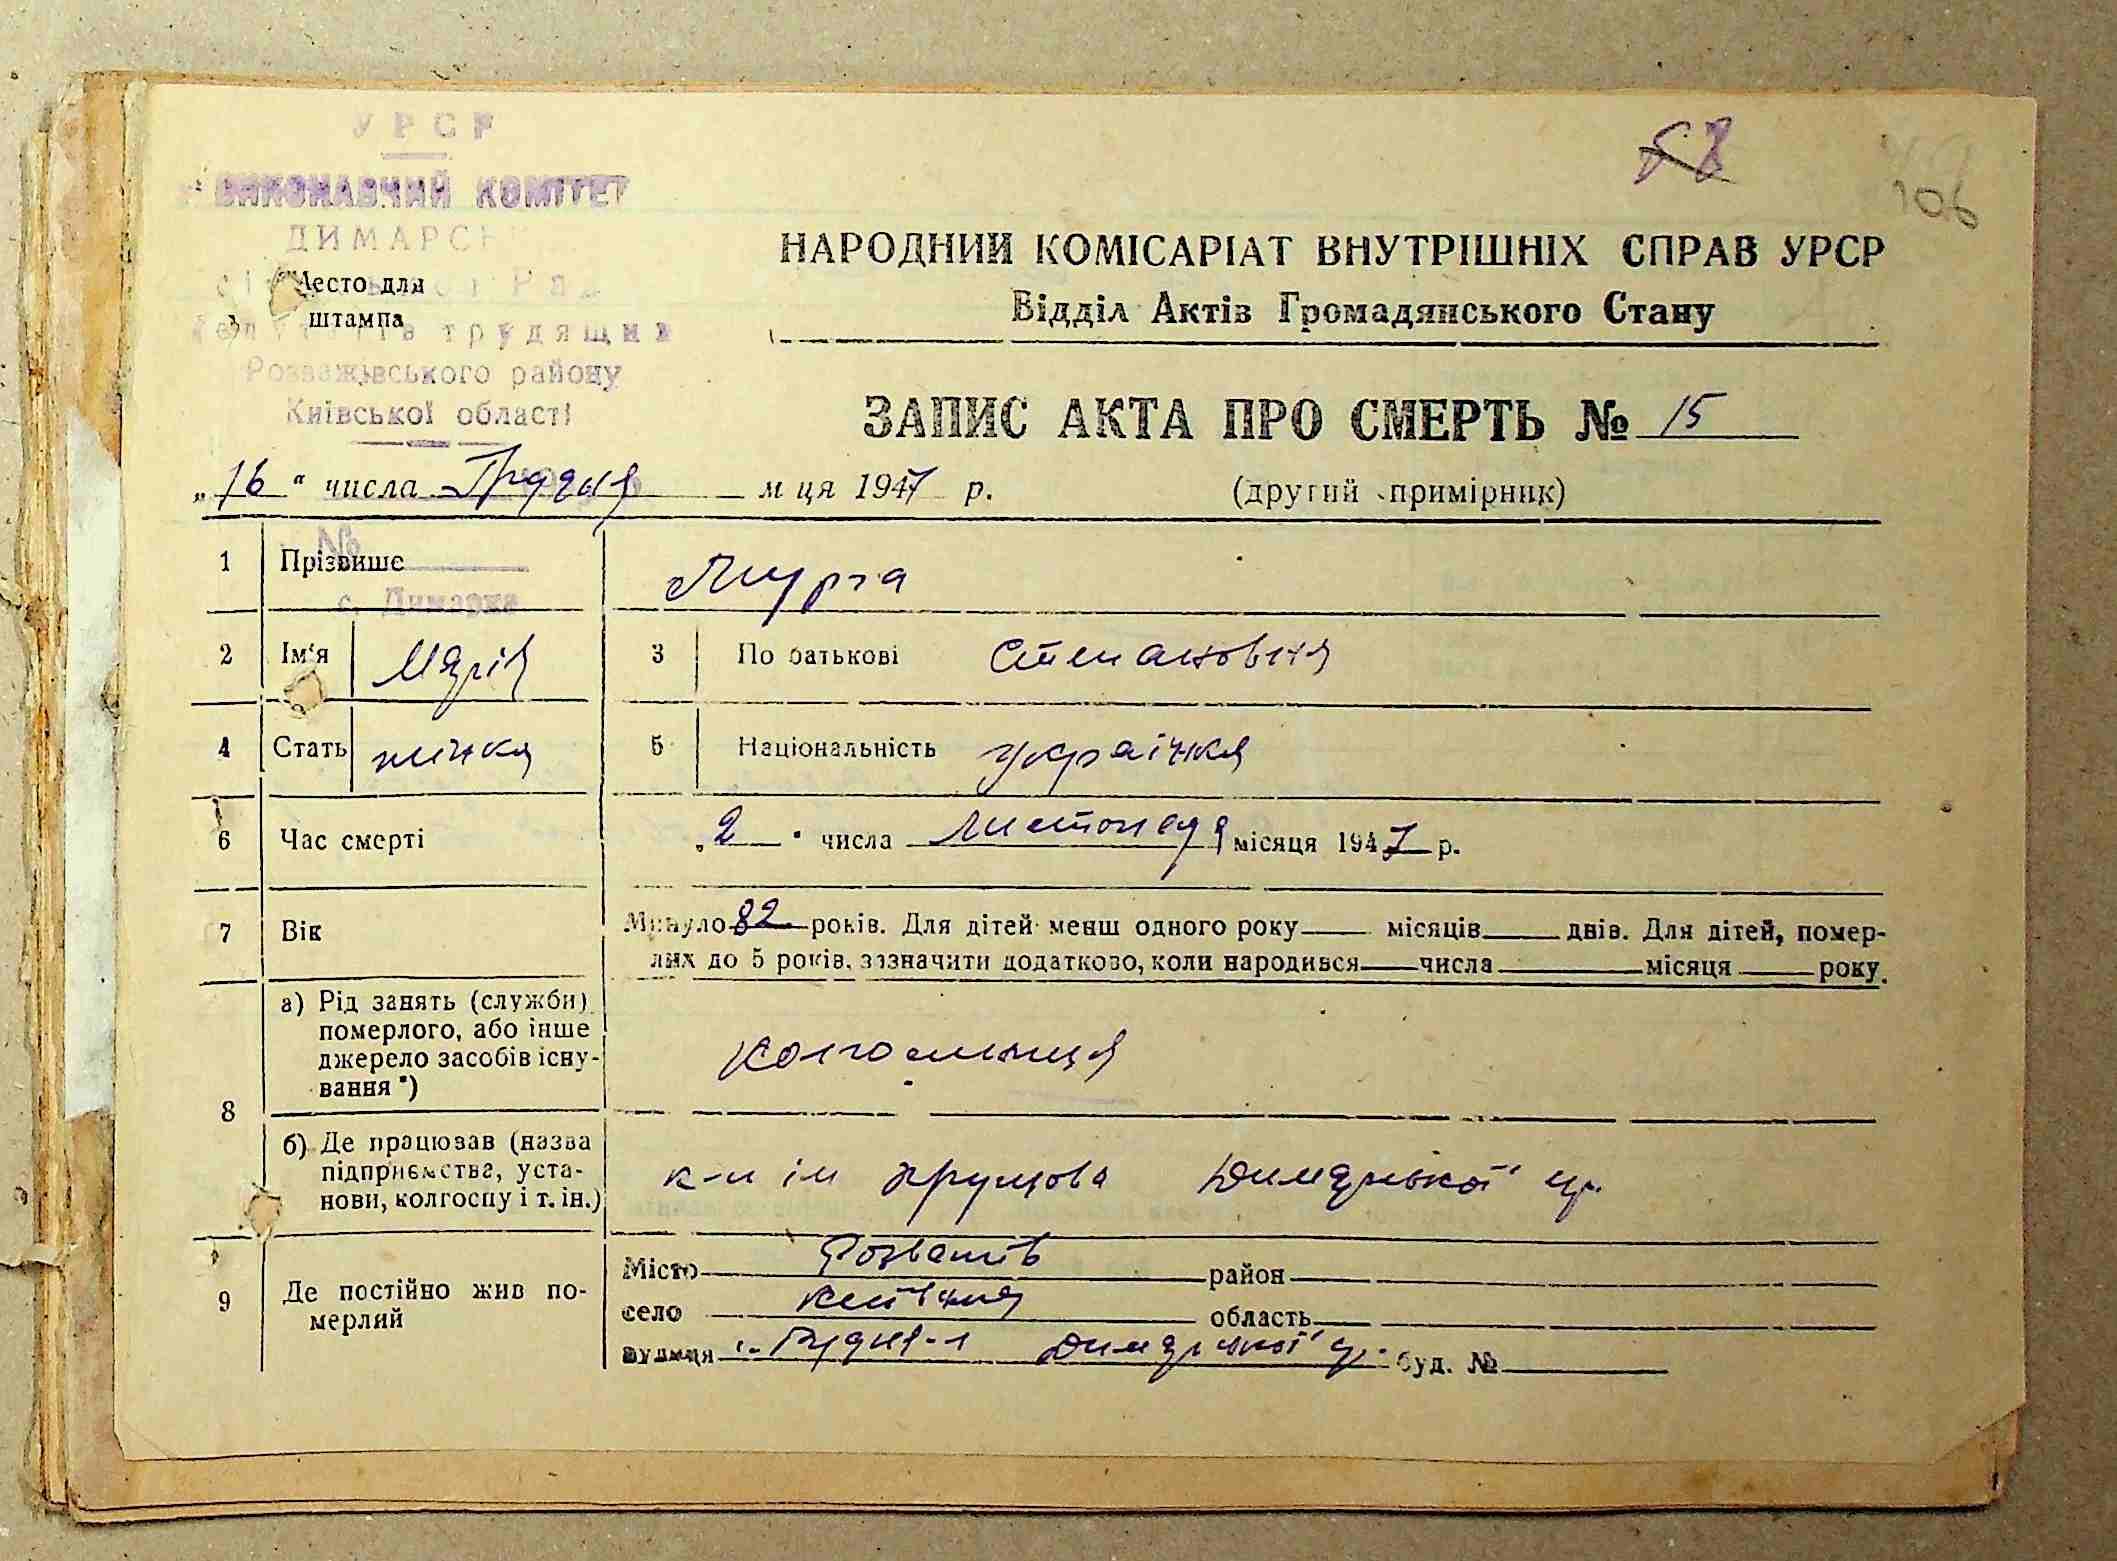 УРСР
58
106
ВИКОНАВЧИЙ КОМІТЕТ
ДИМАРСЬ
НАРОДНИЙ КОМІСАРІАТ ВНУТРІШНІХ СПРАВ УРСР
Место для
штампа
Відділ Актів Громадянського Стану
трудящих
Розважівського району
Київської області
ЗАПИС АКТА ПРО СМЕРТЬ № 15
„16“ числа Грудня м ця 1947 р. (другий примірник)
№
1 Прізвище
с. Димарка
2 Ім'я Марія 3 По батькові Степановна
4 Стать жінка 5 Національність українка
6 Час смерті „2“ числа Листопада місяця 1947 р.
7 Вік Минуло 82 років. Для дітей менш одного року місяців днів. Для дітей, помер-
лих до 5 років, зазначити додатково, коли народився числа місяця року.
8 а) Рід занять (служби)
померлого, або інше
джерело засобів існу-
вання*)
колгоспниця
б) Де працював (назва
підприємства, уста-
нови, колгоспу і т. ін.)
к-п ім Хрущова Димарської
9 Де постійно жив по-
мерлий
Місто Розважів район
село область
вулиця буд. №